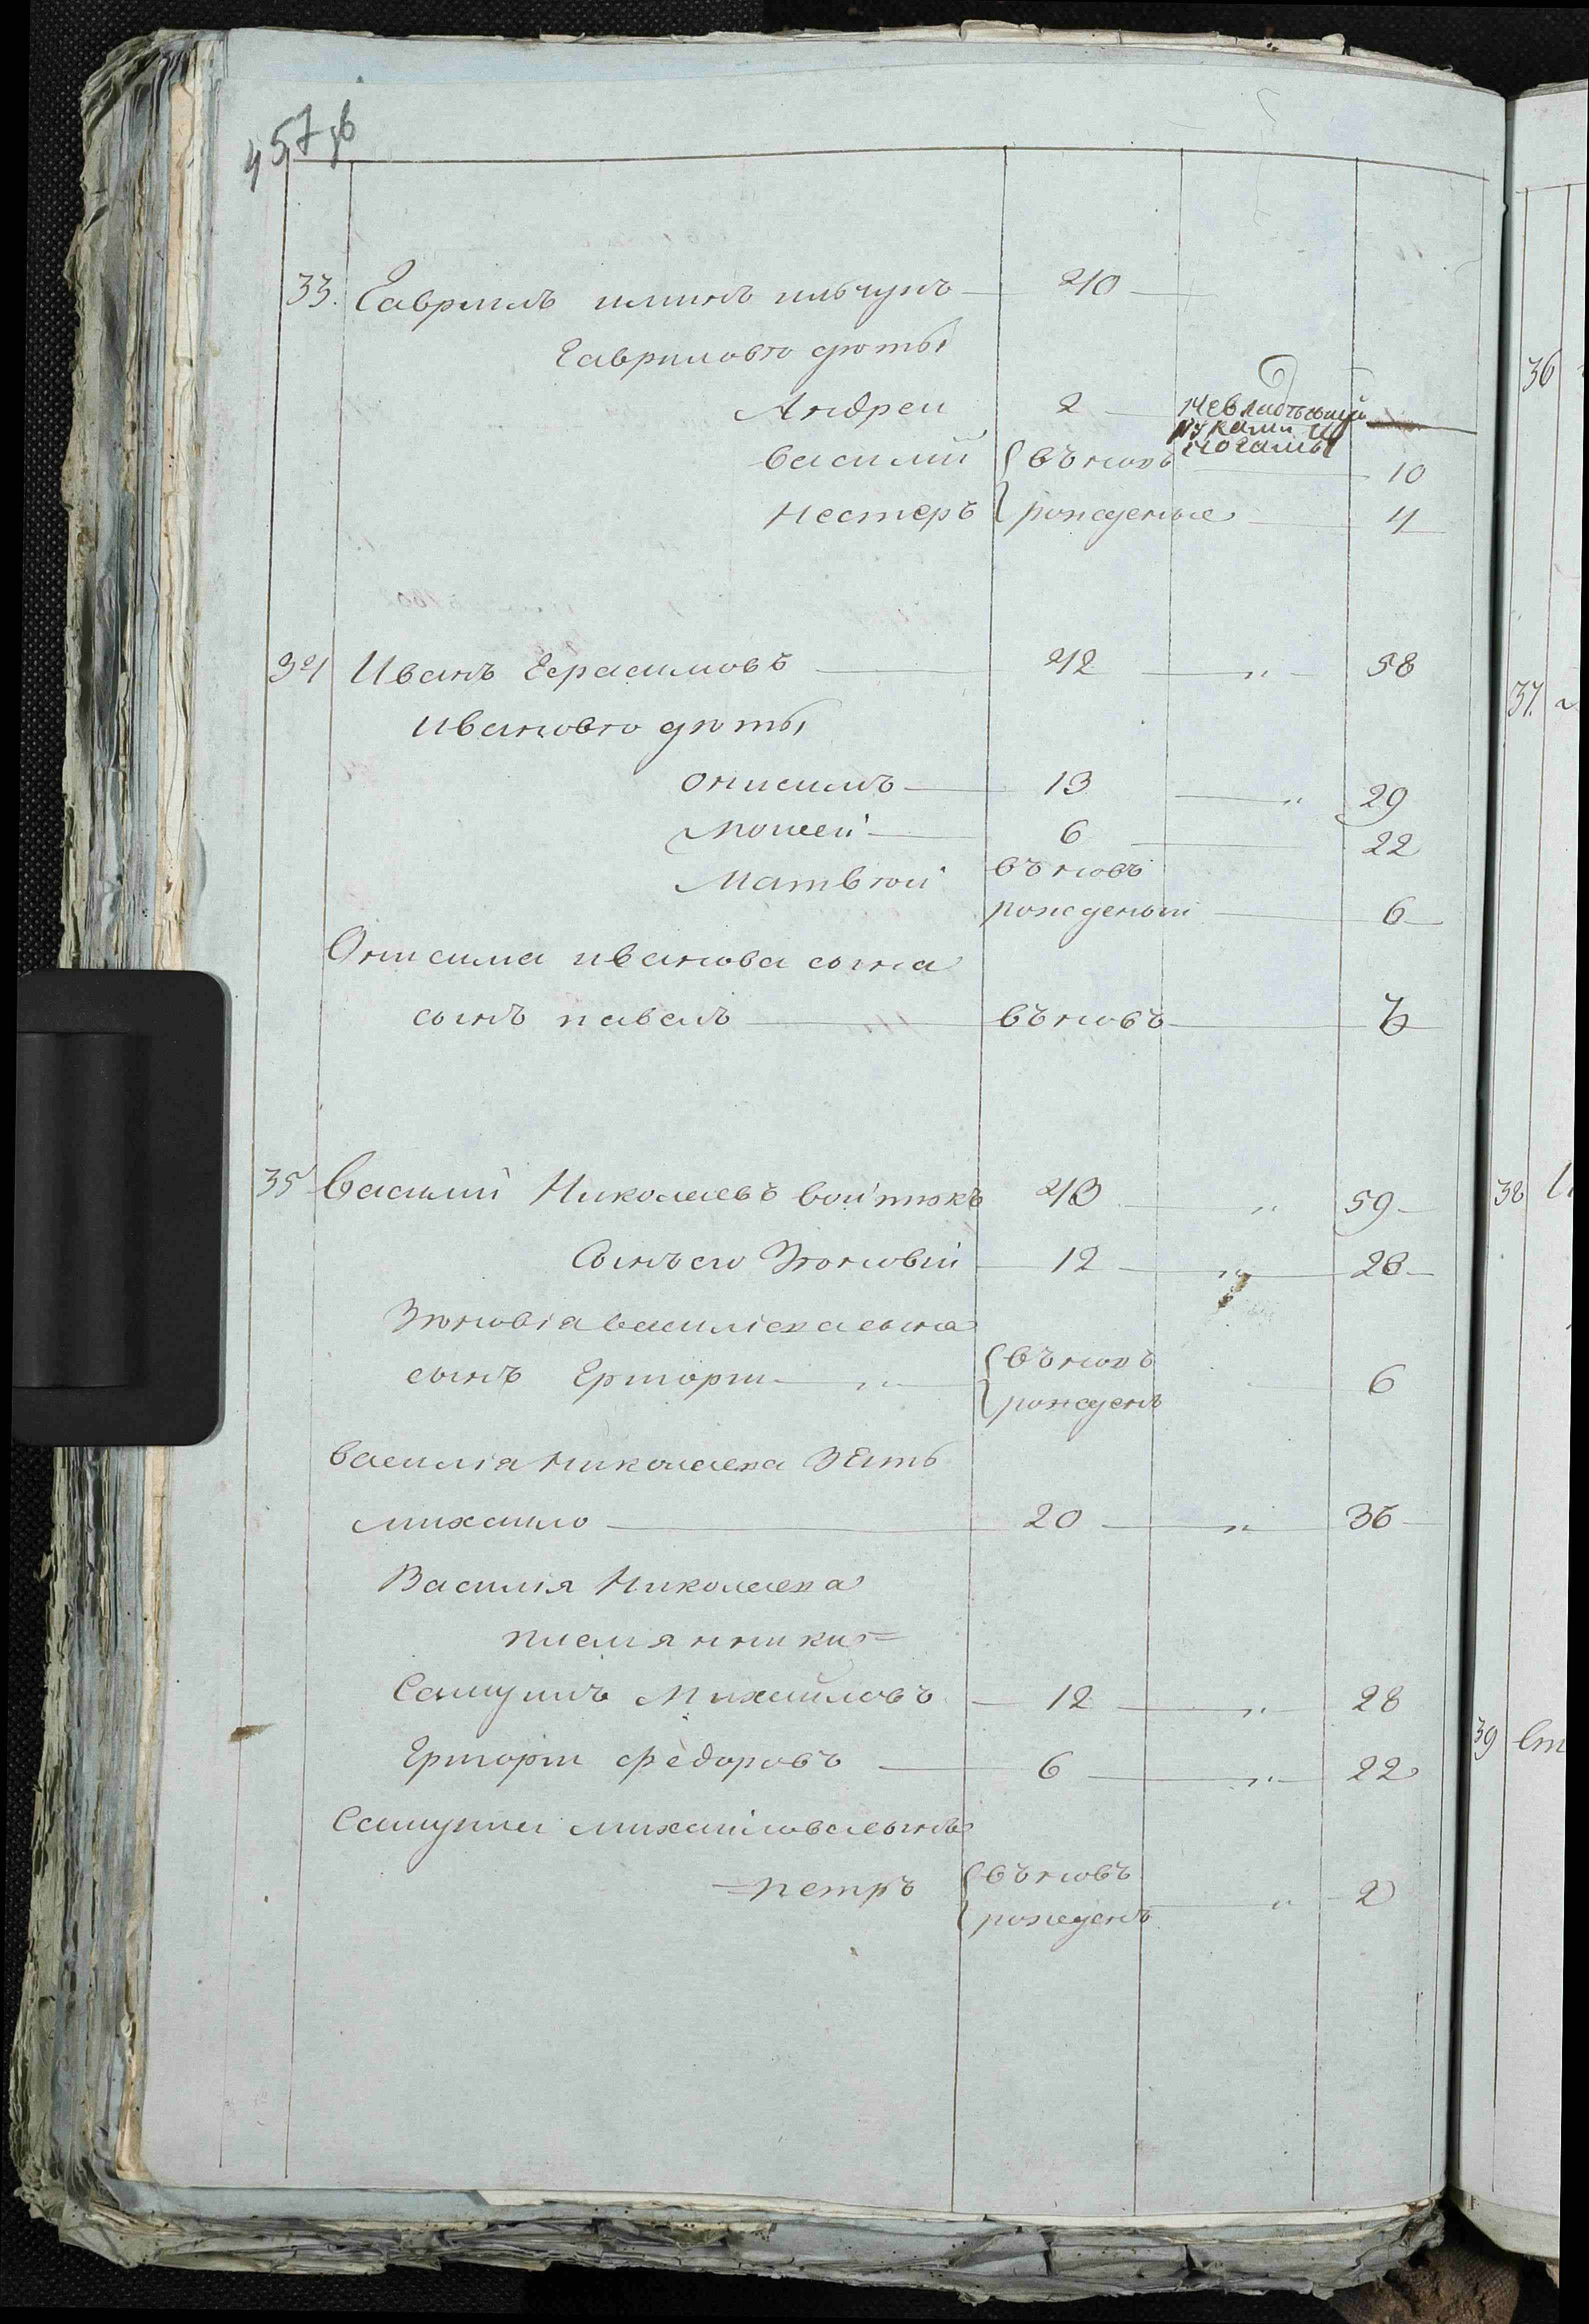 457 об
33. Гаврилъ илинъ ильчукъ 40
Гавриловы дѣты
Андреи 2 не владѣющій
руками и
ногамы
Василий въновь 10
Нестеръ рожденые 4
34 Иванъ Герасимовъ 42 " 58
Ивановы дѣты
Онисимъ 13 " 29
Моисей 6 22
Матвѣй въновь
рожденый 6
Онисима иванова сына
сынъ павелъ въновь
35 Василий Николаевъ войтюкъ 43 " 59
Сынъ его Зѣновій 12 " 28
Зѣновія василіева сына
сынъ Григори " въновь
рожденъ 6
Василія николаева зять
михаило 20 " 36
Василія Николаева
племянники =
Самуилъ Михайловъ 12 " 28
Григори федоровъ 6 " 22
Самуила михайлова сынъ
петръ въновь
рожденъ " 2
36
37.
38
39